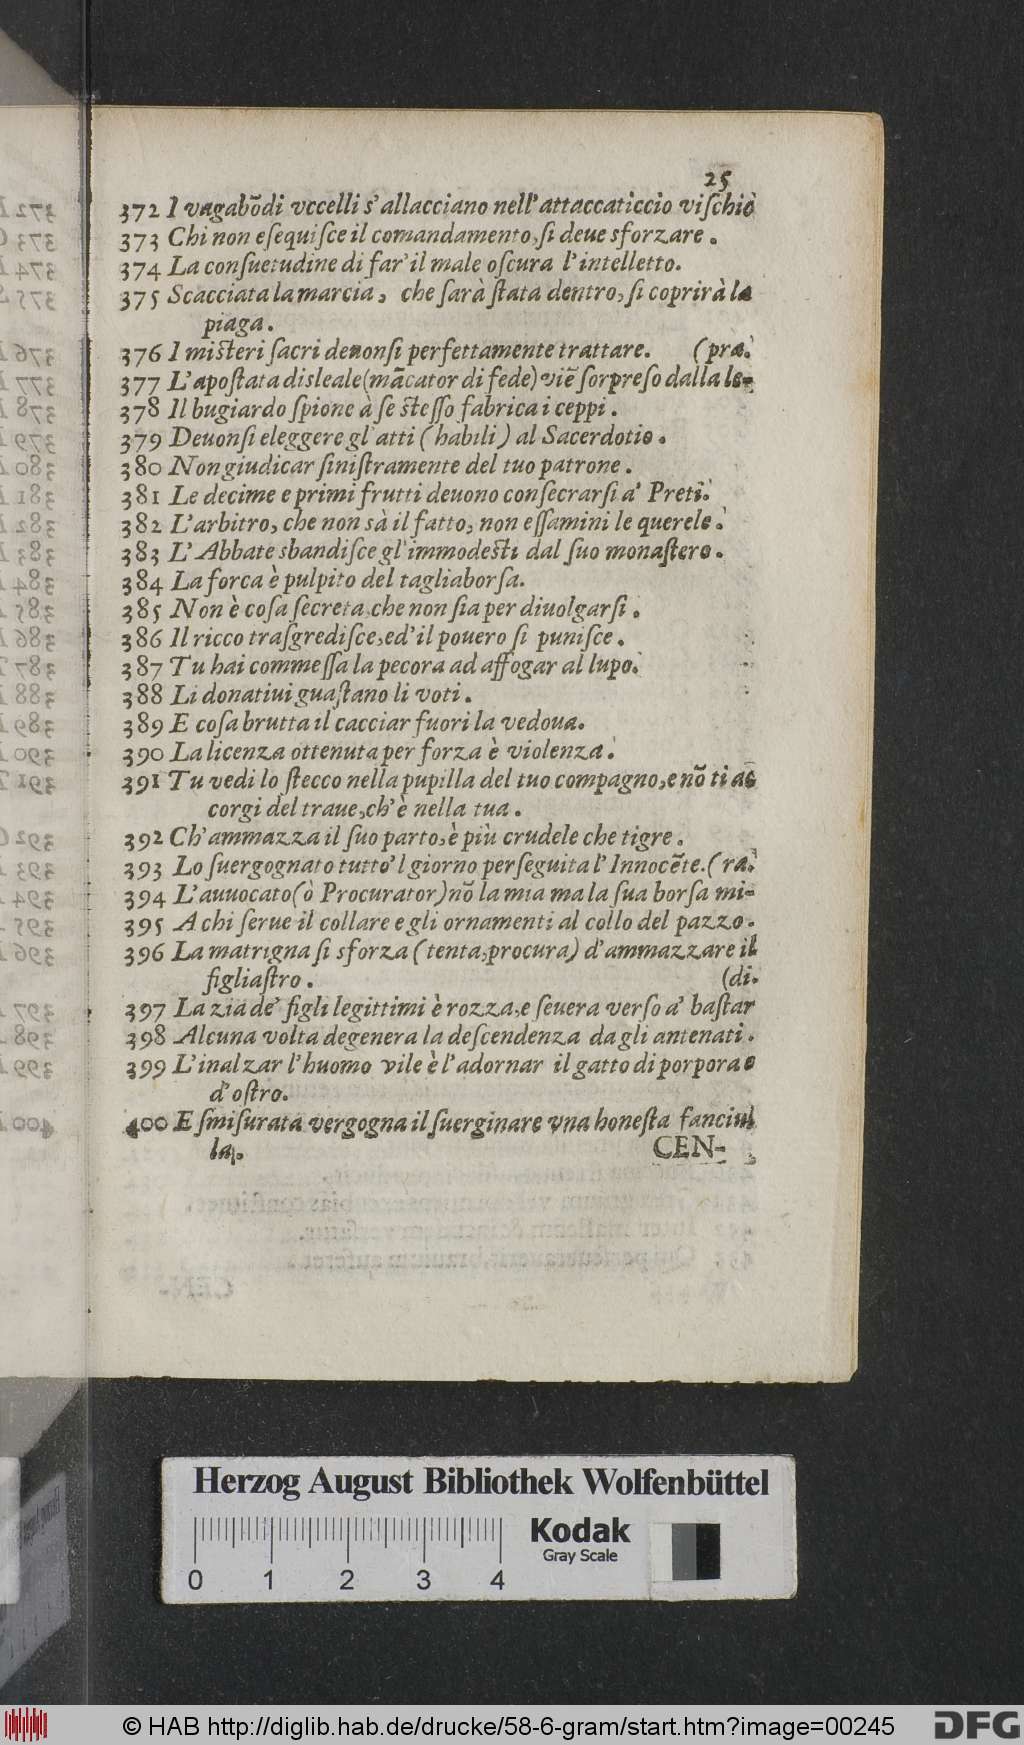 25
372 I vagabõdi vccelli s'allacciano nell'attaccaticcio viſchio
373 Chi non eſequiſce il comandamento, ſi deue sforzare.
374 La conſuetudine di far'il male oſcura l'intelletto.
375 Scacciata la marcia, che ſarà ſtata dentro, ſi coprirà la
piaga.
376 I miſteri ſacri deuonſi perfettamente trattare. (pra.
377 L'apoſtata disleale (mãcator di fede) viẽ ſorpreſo dalla le-
378 Il bugiardo ſpione à ſe ſteſſo fabrica i ceppi.
379 Deuonſi eleggere gl'atti (habili) al Sacerdotio.
380 Non giudicar ſiniſtramente del tuo patrone.
381 Le decime e primi frutti deuono conſecrarſi a' Preti.
382 L'arbitro, che non sà il fatto, non eſſamini le querele.
383 L'Abbate sbandiſce gl'immodeſti dal ſuo monaſtero.
384 La forca è pulpito del tagliaborſa.
385 Non è coſa ſecreta, che non ſia per diuolgarſi.
386 Il ricco traſgrediſce, ed'il pouero ſi puniſce.
387 Tu hai commeſſa la pecora ad affogar al lupo.
388 Li donatiui guaſtano li voti.
389 E coſa brutta il cacciar fuori la vedoua.
390 La licenza ottenuta per forza è violenza.
391 Tu vedi lo ſtecco nella pupilla del tuo compagno, e nõ ti ac
corgi del traue, ch'è nella tua.
392 Ch'ammazza il ſuo parto, è più crudele che tigre.
393 Lo ſuergognato tutto'l giorno perſeguita l'Innocẽte. (ra.
394 L'auuocato (ò Procurator) nõ la mia ma la ſua borſa mi-
395 A chi ſerue il collare e gli ornamenti al collo del pazzo.
396 La matrigna ſi sforza (tenta, procura) d'ammazzare il
figliaſtro. (di.
397 La zia de' figli legittimi è rozza, e ſeuera verſo a' baſtar
398 Alcuna volta degenera la deſcendenza da gli antenati.
399 L'inalzar l'huomo vile è l'adornar il gatto di porpora e
d'oſtro.
400 E ſmiſurata vergogna il ſuerginare vna honeſta fanciul
la.
CEN-
Herzog August Bibliothek Wolfenbüttel
0 1 2 3 4
Kodak
Gray Scale
© HAB http://diglib.hab.de/drucke/58-6-gram/start.htm?image=00245
DFG